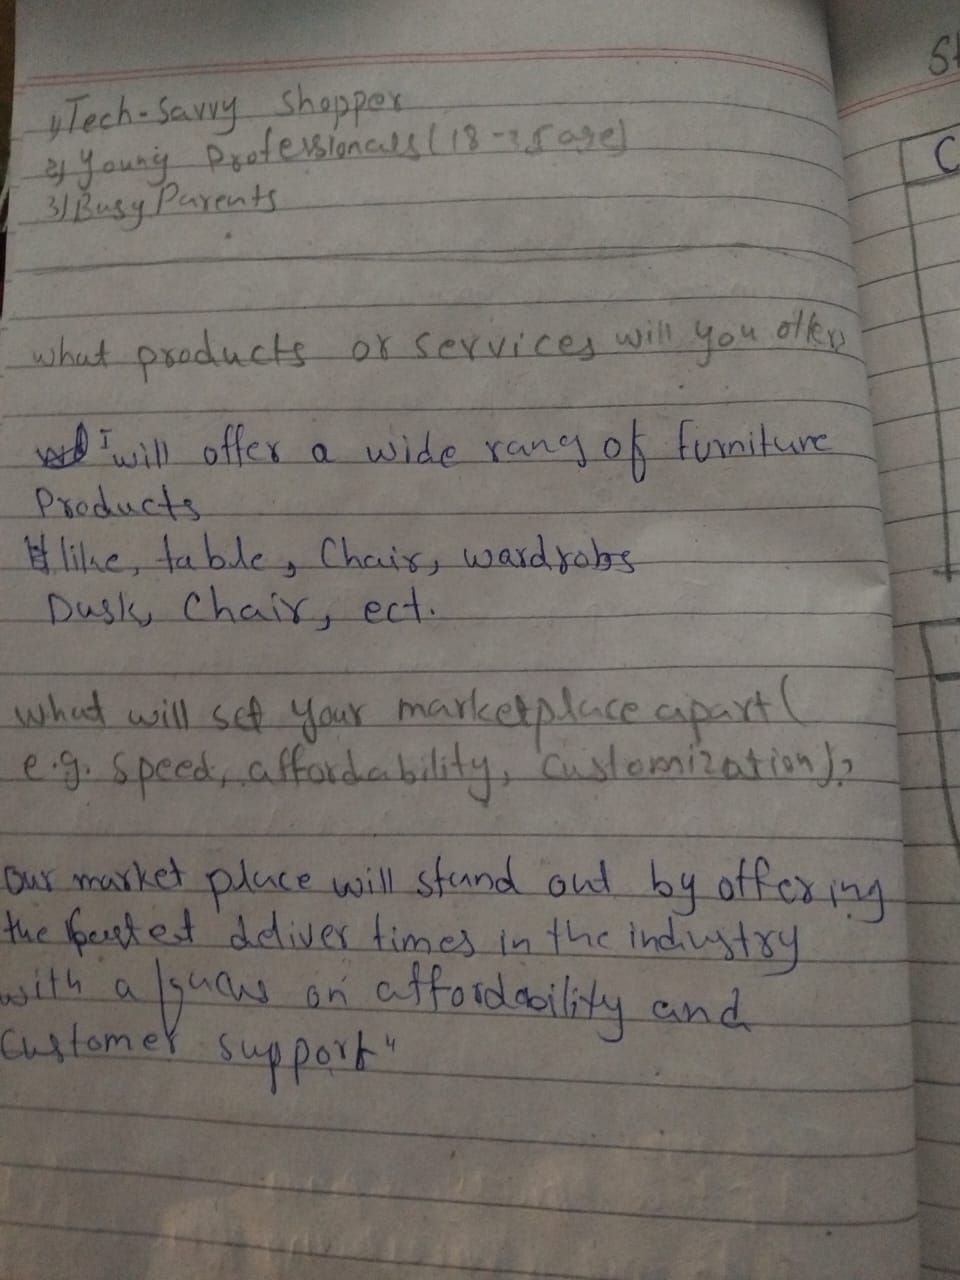 1) Tech-Savvy Shopper
2) Young Professionals (18-35 age)
3) Busy Parents
what products or services will you offer
I will offer a wide rang of furniture
Products
like, table, Chair, wardrobs
Dusk, Chair, ect.
what will set your marketplace apart (
e.g. speed, affordability, customization)?
our market place will stand out by offering
the fastest deliver times in the industry
with a on affordability and
Customer support"
St
C